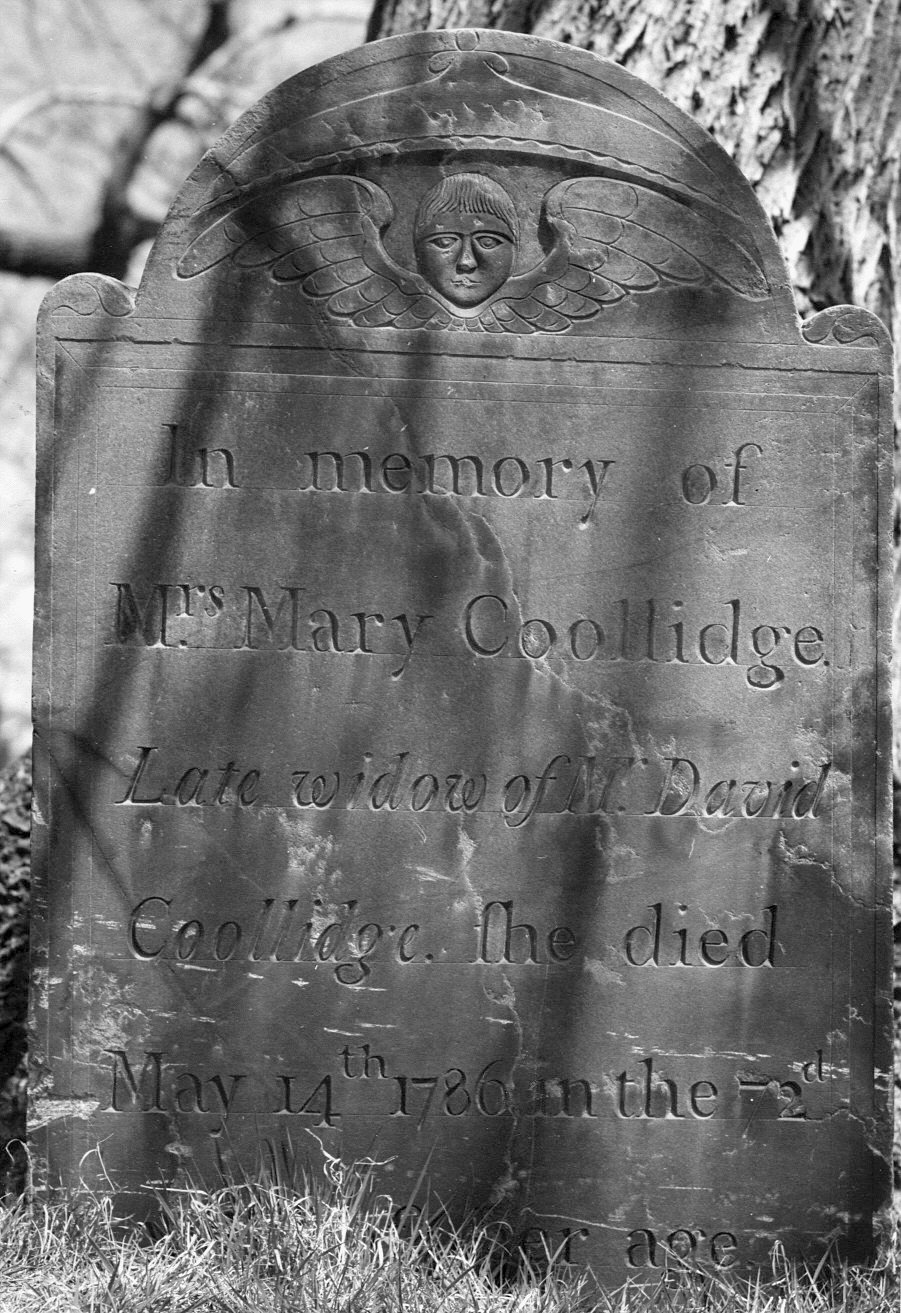 In memory of
Mrs. Mary Coollidge.
Late widow of Mr. David
Coollidge. ſhe died
May 14th 1786 in the 72d
of her age